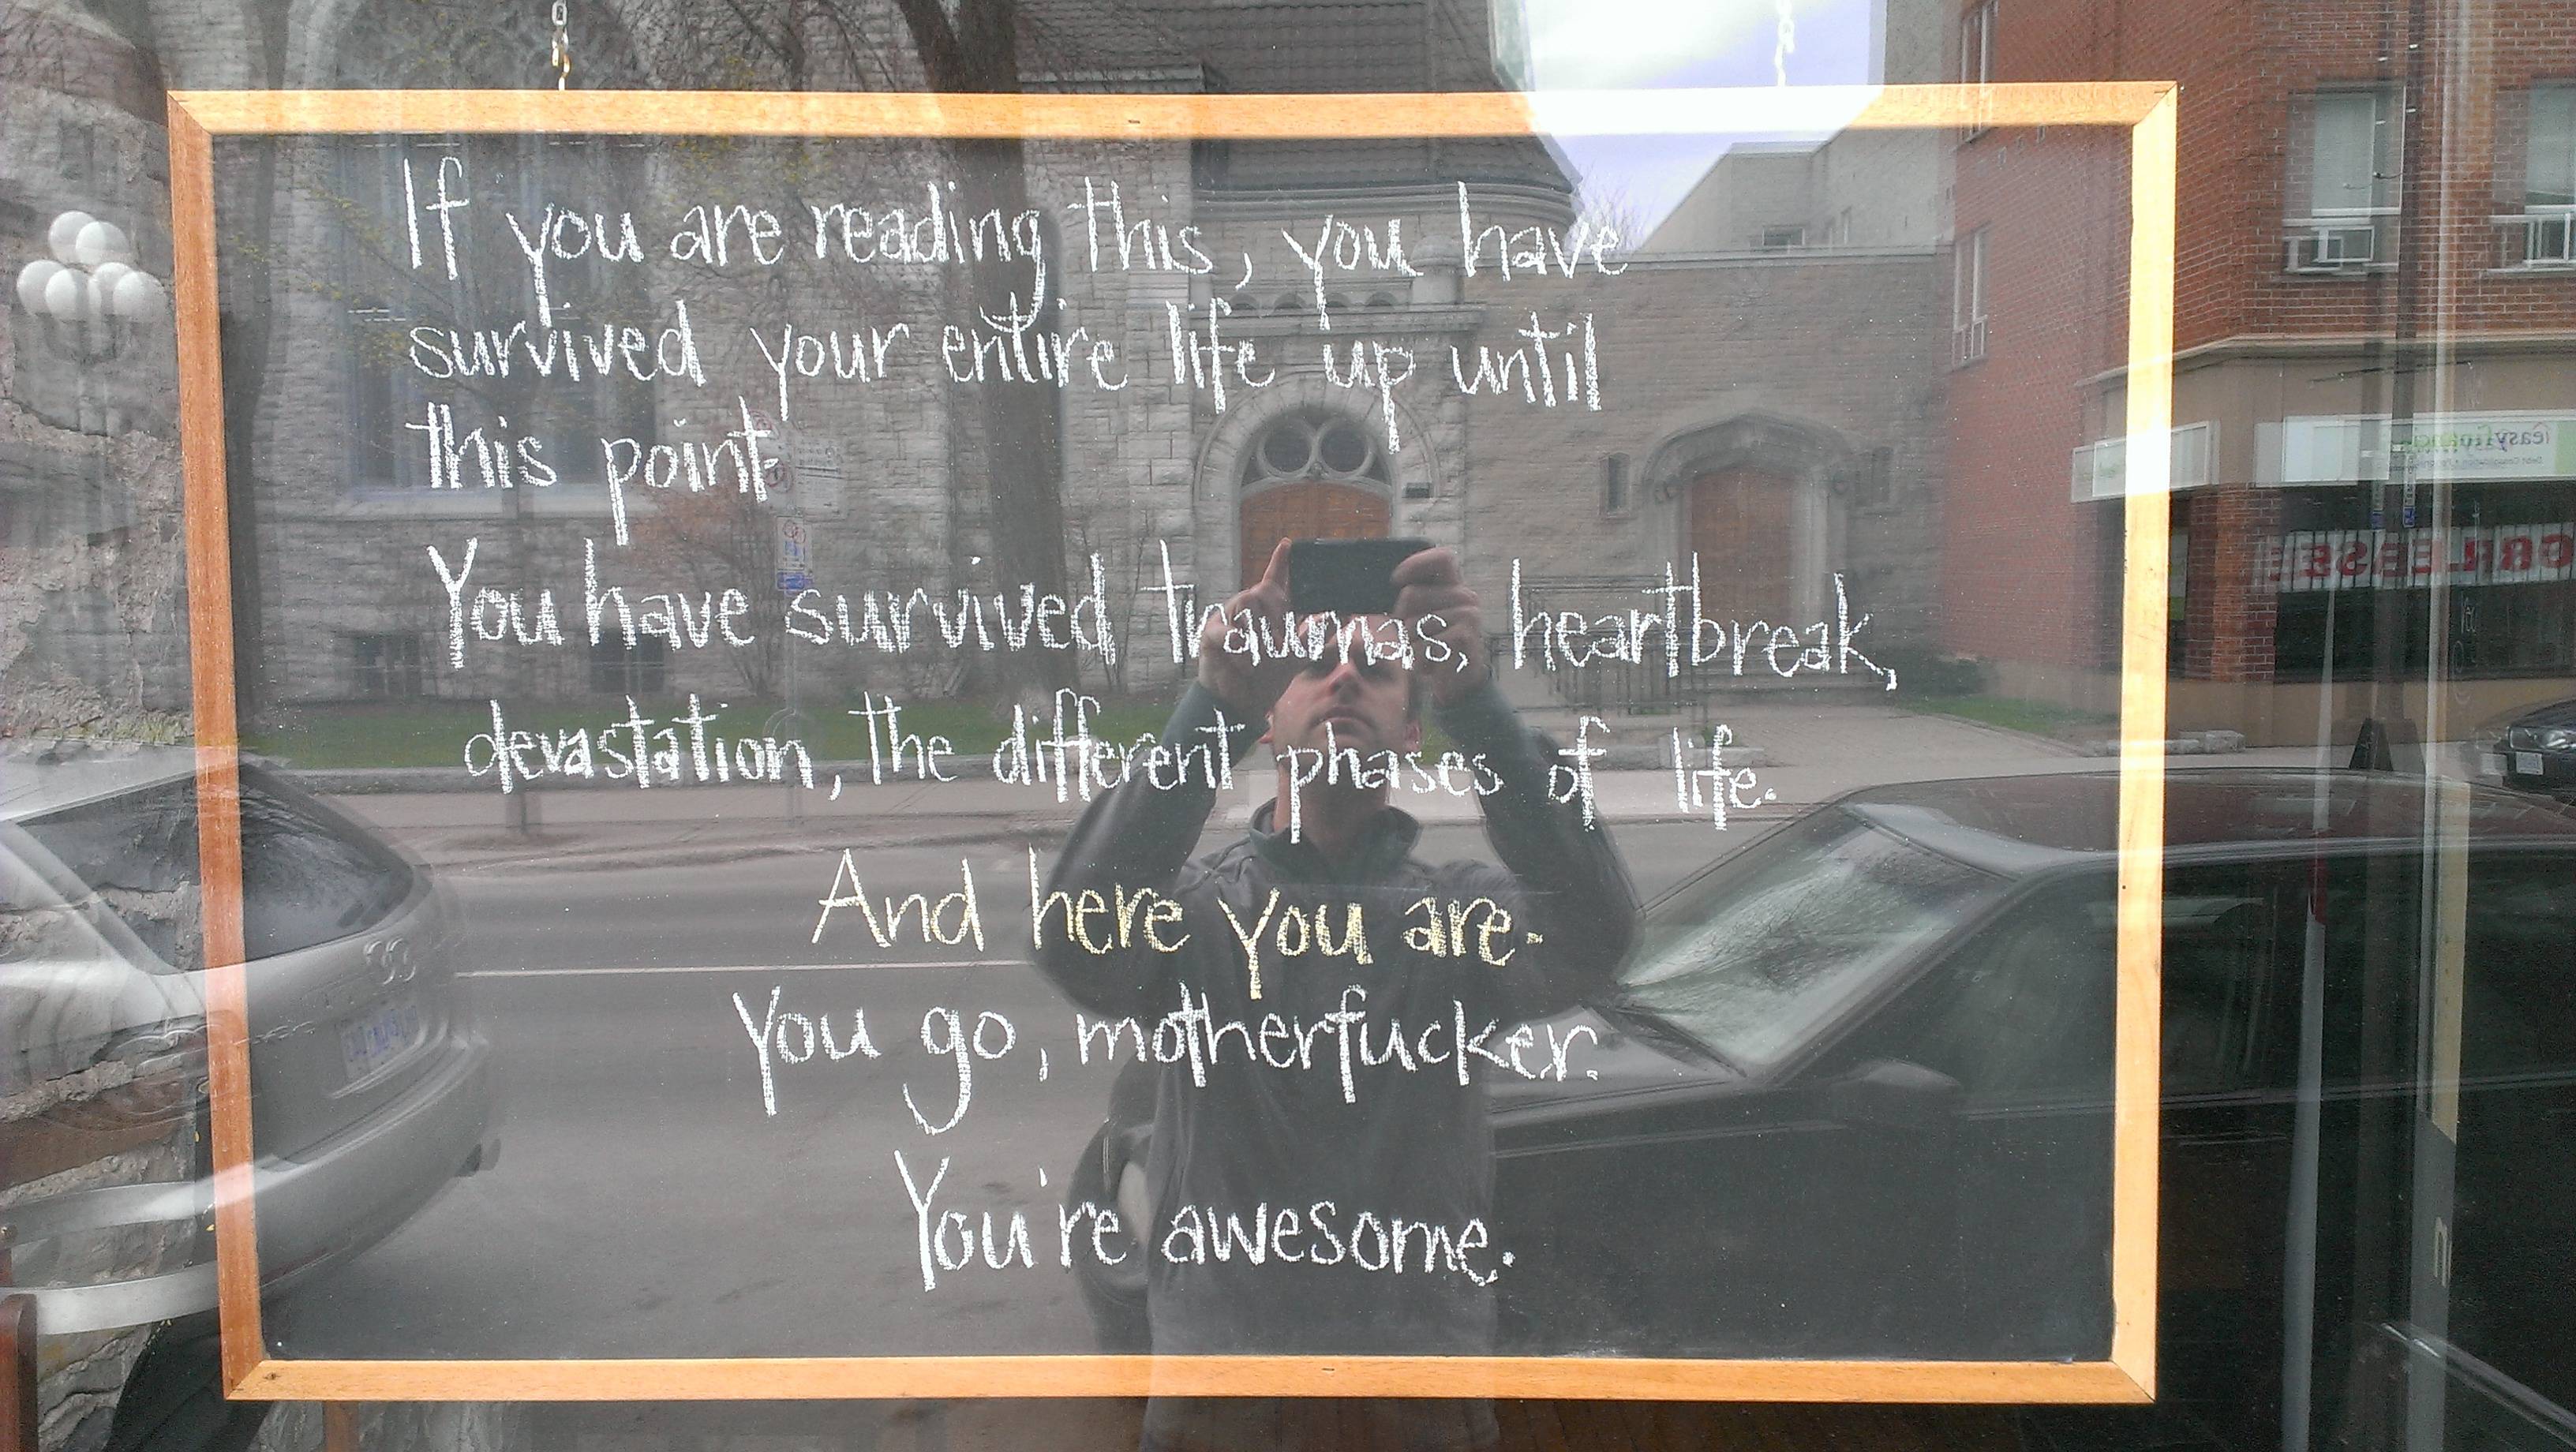 If you are reading this, you have
survived your entire life up until
this point.
You have survived traumas, heartbreak,
devastation, the different phases of life.
And here you are.
You go, motherfucker.
You're awesome.
easyfinancial